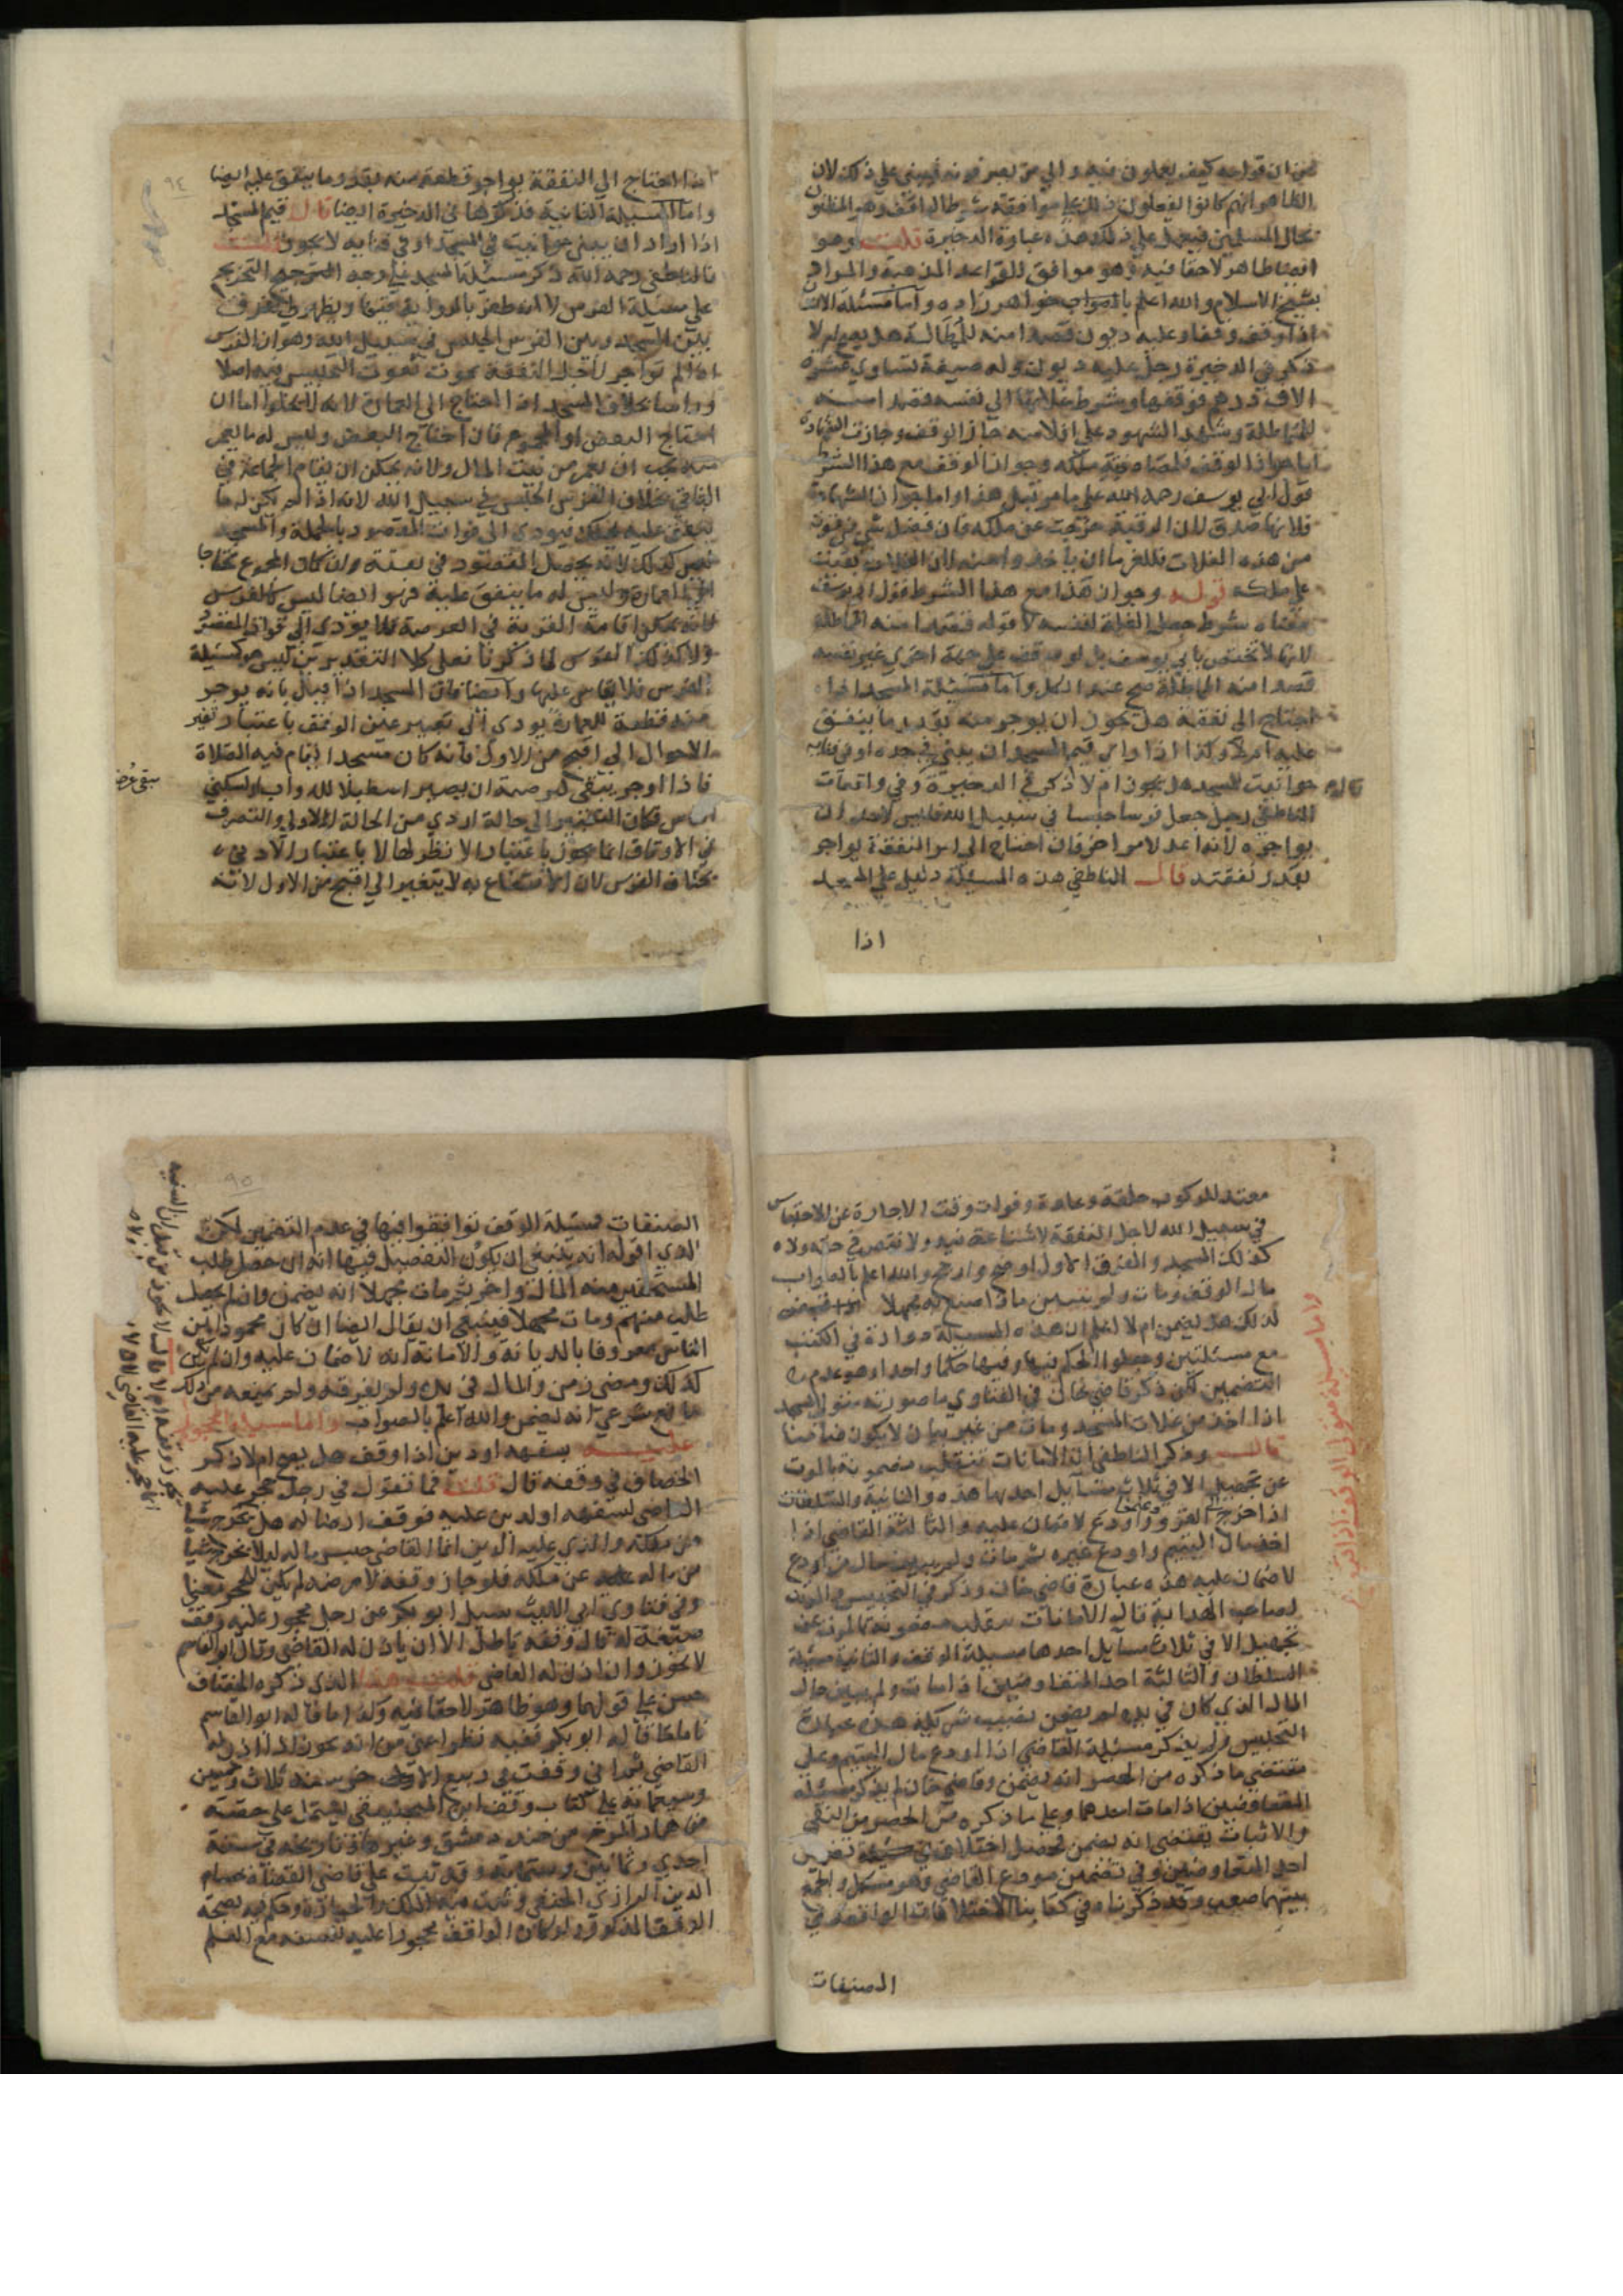 من ان قوامه كيف يعملون فيه والى من يصرفونه فيبنى على ذلك لان
الظاهر انهم كانوا يفعلون ذلك على موافقة شرط الواقف وهو المظنون
بحال المسلمين فيعمل على ذلك هذه عبارة الذخيرة قلت وهو
ايضا ظاهر لا خفا فيه وهو موافق للقواعد المذهبية والمراد
بشيخ الاسلام والله اعلم بالصواب خواهر زاده واما مسئلة الانسان
اذا وقف وقفا وعليه ديون قصدا منه للمماطلة هل يصح ام لا
ذكر في الذخيرة رجل عليه ديون وله ضيعة تساوي عشرة
الاف درهم فوقفها وشرط غلاتها الى نفسه قصدا منه
للمماطلة وشهد الشهود على افلاسه جاز الوقف وجازت الشهادة
اما جواز الوقف فلمصادفته ملكه وجواز الوقف مع هذا الشرط
قول ابي يوسف رحمه الله على ما مر قبل هذا واما جواز الشهادة
فلانها صدق لان الرقبة خرجت عن ملكه فان فضل شي من قوته
من هذه الغلات فللغرما ان ياخذوا منه لان الغلات بقيت
على ملكه قوله وجواز هذا مع هذا الشرط قول ابي يوسف
معناه شرط جعل الغلة لنفسه لا قوله قصدا منه المماطلة
لانها لا تختص بابي يوسف بل لو وقف على جهة اخرى غير نفسه
قصدا منه المماطلة صح عند الكل واما مسئلة المسجد اذا
احتاج الى نفقة هل يجوز ان يوجر منه بقدر ما ينفق
عليه ام لا وكذا اذا اراد قيم المسجد ان يبني في حده او في فنايه
حوانيت للمسجد هل يجوز ام لا ذكر في الذخيرة وفي واقعات
الناطفي رجل جعل فرسا حبسا في سبيل الله فليس لاحد ان
يواجره لانه اعد لامر اخر فان احتاج الى النفقة يواجر
بقدر نفقته قال الناطفي هذه المسئلة دليل على المسجد
اذا
٩٤
اذا احتاج الى النفقة يواجر قطعة منه بقدر ما ينفق عليه ايضا
واما المسئلة الثانية فذكرها في الذخيرة ايضا قال قيم المسجد
اذا اراد ان يبني حوانيت في المسجد او في فنايه لا يجوز قلت
فالناطفي رحمه الله ذكر مسئلة المسجد على وجه التخريج
على مسئلة الفرس لا انه ظفر بالرواية فيها ويظهر لي الفرق
بين المسجد وبين الفرس الحبيس في سبيل الله وهو ان الفرس
اذا لم تواجر لاجل النفقة يموت فيفوت التحبيس فيه اصلا
وراسا بخلاف المسجد اذا احتاج الى العمارة لانه لا يخلو اما ان
احتاج البعض او المجموع فان احتاج البعض وليس له ما يعمر
منه يجب ان يعمر من بيت المال ولانه يمكن ان يقام الجماعة في
الباقي بخلاف الفرس الحبيس في سبيل الله لانه اذا لم يكن له ما
ينفق عليه يهلك فيودي الى فوات المقصود بالجملة والمسجد
ليس كذلك لانه يحصل المقصود في بعضه وان كان المجموع محتاجا
الى العمارة وليس له ما ينفق عليه فهو ايضا ليس كالفرس
لانه يمكن اقامة القربة في العرصة فلا يودي الى فوات المقصود
ولا كذلك الفرس لما ذكرنا فعلى كلا التقديرين ليس هو كمسئلة
الفرس فلا يقاس عليها وايضا فان المسجد اذا قيل بانه يوجر
منه قطعة للعمارة يودي الى تغيير عين الوقف باعتبار تغير
الاحوال الى اقبح من الاول فانه كان مسجدا يقام فيه الصلاة
فاذا اوجر يبقى عرصة ان يصير اسطبلا للدواب او لسكنى
اناس فكان التغيير الى حالة اردى من الحالة الاولى والتصرف
في الاوقاف انما يجوز باعتبار الانظر لها لا باعتبار الادنى
بخلاف الفرس لان الانتفاع به لا يتغير الى اقبح من الاول لانه
معتد للركوب خلقة وعادة وفوات وقت الاجارة عن الاحتباس
في سبيل الله لاجل النفقة لا شناعة فيه ولا نقص في حقه ولا
كذلك المسجد والفرق الاول اوضح وارجح والله اعلم بالصواب
واما مسئلة متولي الوقف اذا قبض
مال الوقف ومات ولم يتبين ماذا صنع به مجهلا
لذلك هل يضمن ام لا اعلم ان هذه المسئلة مدارة في الكتب
مع مسئلتين وجعلوا الحكم فيها وفيهما حكما واحدا وهو عدم
التضمين لكن ذكر قاضي خان في الفتاوي ما صورته متولي المسجد
اذا اخذ من غلات المسجد ومات من غير بيان لا يكون ضامنا
قال وذكر الناطفي ان الامانات تنقلب مضمونة بالموت
عن تجهيل الا في ثلاث مسايل احديها هذه والثانية السلطان
اذا خرج الى الغزو وغنموا واودع لا ضمان عليه والثالثة القاضي اذا
اخذ مال اليتيم واودع غيره ثم مات ولم يبين حال من اودع
لا ضمان عليه هذه عبارة قاضي خان وذكر في التجنيس والمزيد
لصاحب الهداية قال الامانات تنقلب مضمونة بالموت عن
تجهيل الا في ثلاث مسايل احدها مسيلة الوقف والثانية مسئلة
السلطان والثالثة احد المتفاوضين اذا مات ولم يبين حال
المال الذي كان في يده لم يضمن نصيب شريكه هذه عبارة
التجنيس فلم يذكر مسئلة القاضي اذا اودع مال اليتيم وعلى
مقتضى ما ذكره من الحصر انه يضمن وقاضي خان لم يذكر مسئلة
المتفاوضين اذا مات احدهما وعلى ما ذكره من الحصر من النفي
والاثبات يقتضي انه يضمن فحصل اختلاف في تضمين
احد المتفاوضين وفي تضمين مودع القاضي وهو مشكل والجمع
بينهما صعب وقد ذكرناه في كتابنا الاختلافات الواقعة في
المصنفات
٩٥
المصنفات فمسئلة الوقف توافقوا فيها في عدم التضمين لكن
الذي اقوله انه ينبغي ان يكون التفصيل فيها انه ان حصل طلب
المستحقين منه المال واخر ثم مات مجهلا انه يضمن وان لم يحصل
طلب منهم ومات مجهلا فينبغي ان يقال ايضا ان كان محمودا بين
الناس معروفا بالديانة والامانة انه لا ضمان عليه وان لم يكن
كذلك ومضى زمن والمال في يده ولم يفرقه ولم يمنعه من ذلك
مانع شرعي انه يضمن والله اعلم بالصواب واما مسئلة المحجور
عليه بسفه او دين اذا وقف هل يصح ام لا ذكر
الخصاف في وقفه قال قلت فما تقول في رجل حجر عليه
القاضي لسفهه او لدين عليه فوقف ارضا له هل يخرج شيا
من ملكه والذي عليه الدين انما القاضي حبس ماله ليلا يخرج شيا
من ماله عن ملكه فلو جاز وقفه لارضه لم يكن للحجر معنى
وفي فتاوي ابي الليث سيل ابو بكر عن رجل محجور عليه وقف
ضيعة له قال وقفه باطل الا ان ياذن له القاضي وقال ابو القاسم
لا يجوز وان اذن له القاضي الذي ذكره الخصاف
حسن على قولهما وهو ظاهر لا خفا فيه وكذا ما قاله ابو القاسم
فاما ما قاله ابو بكر ففيه نظر اعني من انه يجوز اذا اذن له
القاضي ثم اني وقفت في ربيع الاول سنة ثلاث وخمسين
وسبعماية على كتاب وقف
احدي وثمانين وستماية وقد ثبت على قاضي القضاة حسام
الدين الرازي الحنفي وثبت عنده الملك والحيازة وحكم فيه بصحة
الوقف المذكور ولو كان الواقف محجورا عليه لنفسه مع العلم